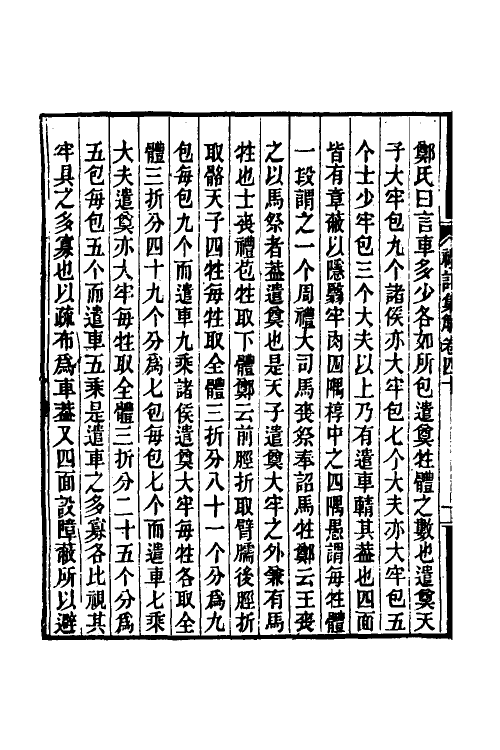 鄭氏曰言車多少各如所包遣奠牲體之數也遣奠天
子大牢包九个諸侯亦大牢包七个大夫亦大牢包五
个士少牢包三个大夫以上乃有遣車輤其葢也四面
皆有章蔽以隱翳牢肉四隅椁中之四隅愚謂每牲體
一段謂之一个周禮大司馬喪祭奉詔馬牲鄭云王喪
之以馬祭者葢遣奠也是天子遣奠大牢之外兼有馬
牲也士喪禮苞牲取下體鄭云前脛折取臂臑後脛折
取骼天子四牲每牲取全體三折分八十一个分爲九
包每包九个而遣車九乘諸侯遣奠大牢每牲各取全
體三折分四十九个分爲七包每包七个而遣車七乘
大夫遣奠亦大牢每牲取全體三折分二十五个分爲
五包每包五个而遣車五乘是遣車之多寡各比視其
牢具之多寡也以疏布爲車葢又四面設障蔽所以避
禮記集解卷四十